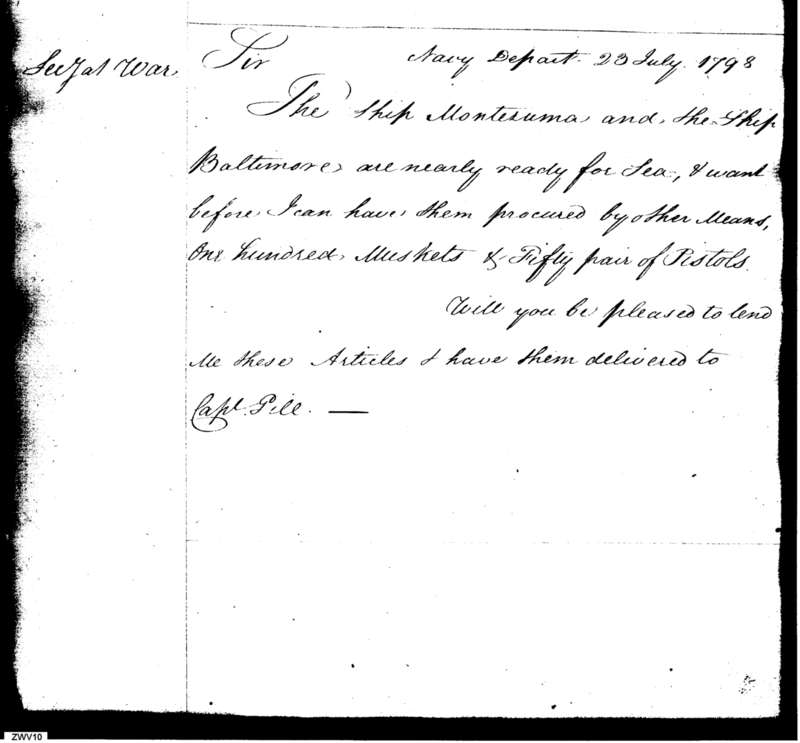 Secy at War
Sir
Navy Depart. 23 July 1798
The Ship Montezuma and the Ship
Baltimore are nearly ready for Sea, & want
before I can have them procured by other Means,
One hundred Muskets & Fifty pair of Pistols.
Will you be pleased to lend
Me these Articles & have them delivered to
Capt. Gill. —
ZWV10